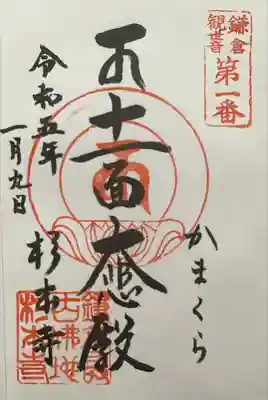 鎌倉
観世音
第一番
かまくら
十一面大悲殿
令和五年
一月九日
杉本寺
古佛地